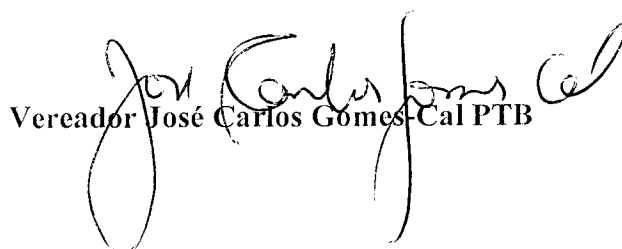 José Carlos Gomes Cal
Vereador José Carlos Gomes-Cal PTB